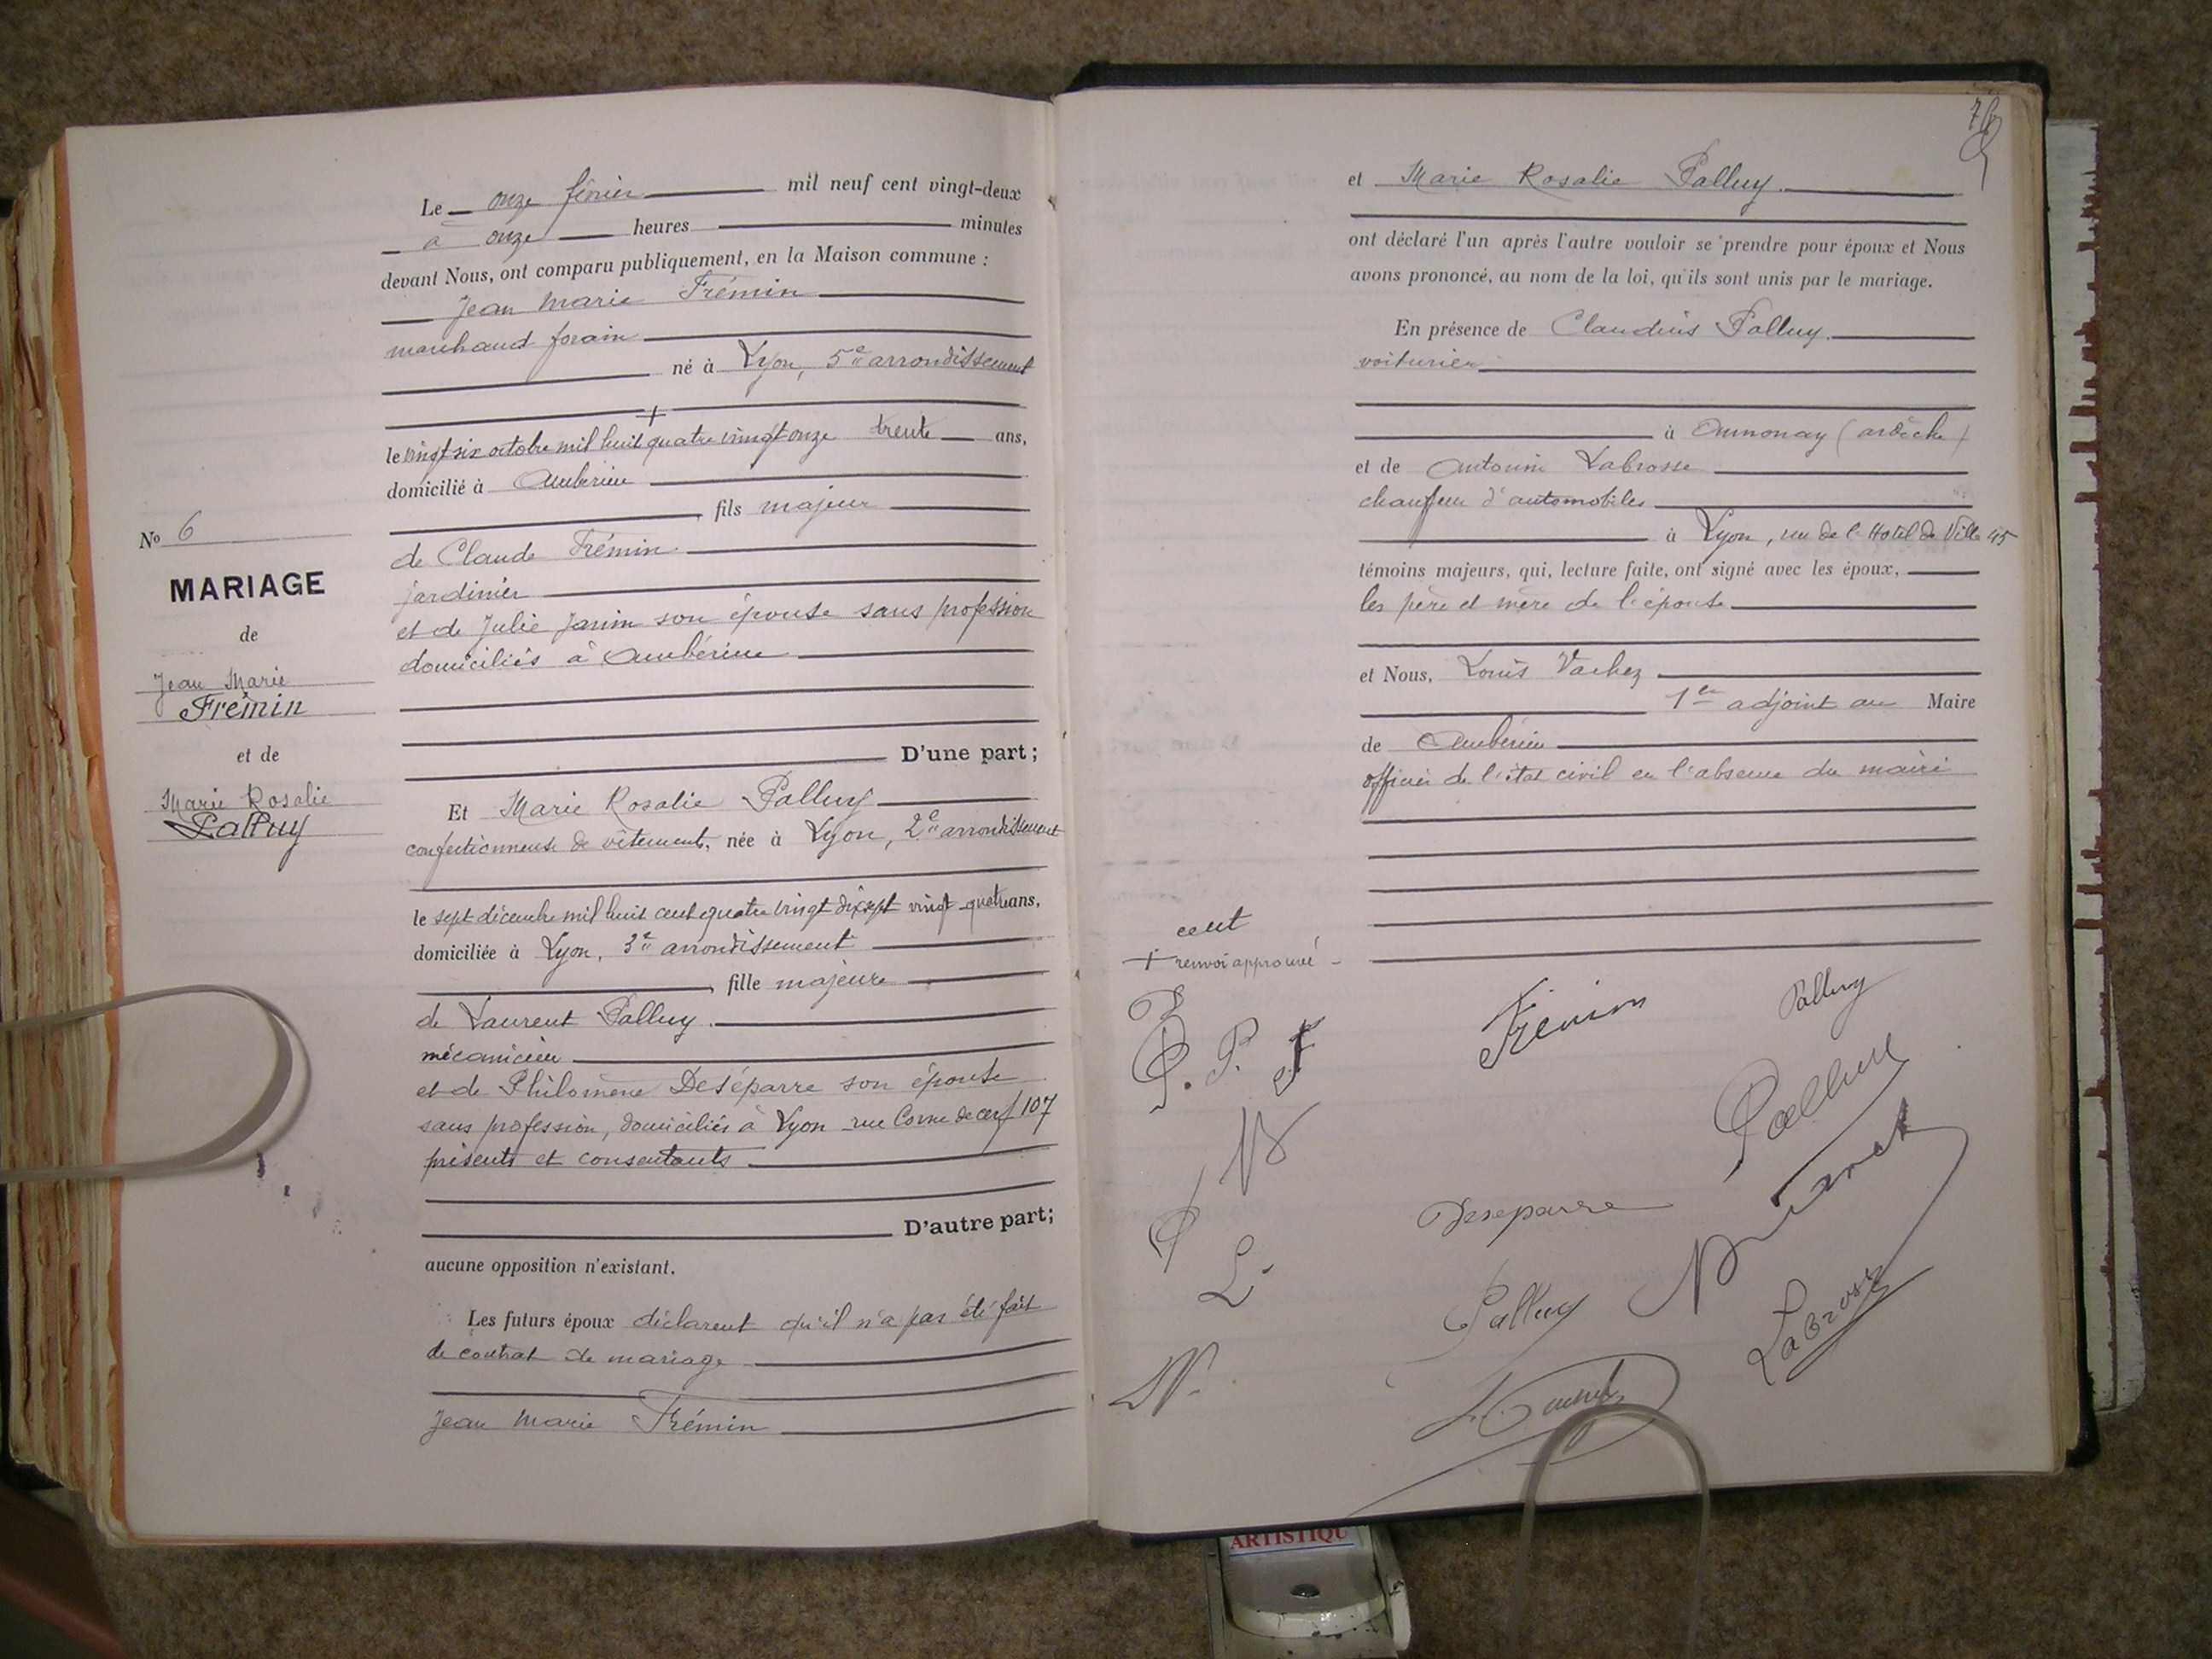 Le onze février mil neuf cent vingt-deux
à onze heures minutes
devant Nous, ont comparu publiquement, en la Maison commune :
Jean Marie Frémin
marchand forain
né à Lyon, 5e arrondissement
+
le vingt six octobre mil huit quatre vingt onze trente ans,
domicilié à Ambérieu
, fils majeur
de Claude Frémin
jardinier
et de Julie Janin son épouse sans profession
domiciliés à Ambérieu
D'une part ;
Et Marie Rosalie Palluy
confectionneuse de vêtements, née à Lyon, 2e arrondissement
le sept décembre mil huit cent quatre vingt dix sept vingt quatre ans,
domiciliée à Lyon, 3e arrondissement
, fille majeure
de Laurent Palluy.
mécanicien
et de Philomène Deséparre son épouse
sans profession, domiciliés à Lyon rue Corne de cerf 107
présents et consentants
D'autre part ;
aucune opposition n'existant.
Les futurs époux déclarent qu'il n'a pas été fait
de contrat de mariage
Jean Marie Frémin
No 6
MARIAGE
de
Jean Marie
Frémin
et de
Marie Rosalie
Palluy
et Marie Rosalie Palluy.
ont déclaré l'un après l'autre vouloir se prendre pour époux et Nous
avons prononcé, au nom de la loi, qu'ils sont unis par le mariage.
En présence de Claudius Palluy.
voiturier
à Annonay (ardèche)
et de Antonin Labrosse
chauffeur d'automobiles
à Lyon, rue de l'Hotel de Ville 45
témoins majeurs, qui, lecture faite, ont signé avec les époux,
les père et mère de l'épouse
et Nous, Louis Vachez
1er adjoint au Maire
de Ambérieu
officier de l'état civil en l'absence du maire
cent
+ renvoi approuvé
P. P. F
L.
LV.
Frémin
Palluy
Palluy
Deseparre
Palluy
Labrosse
L. Vachez
ARTISTIQU